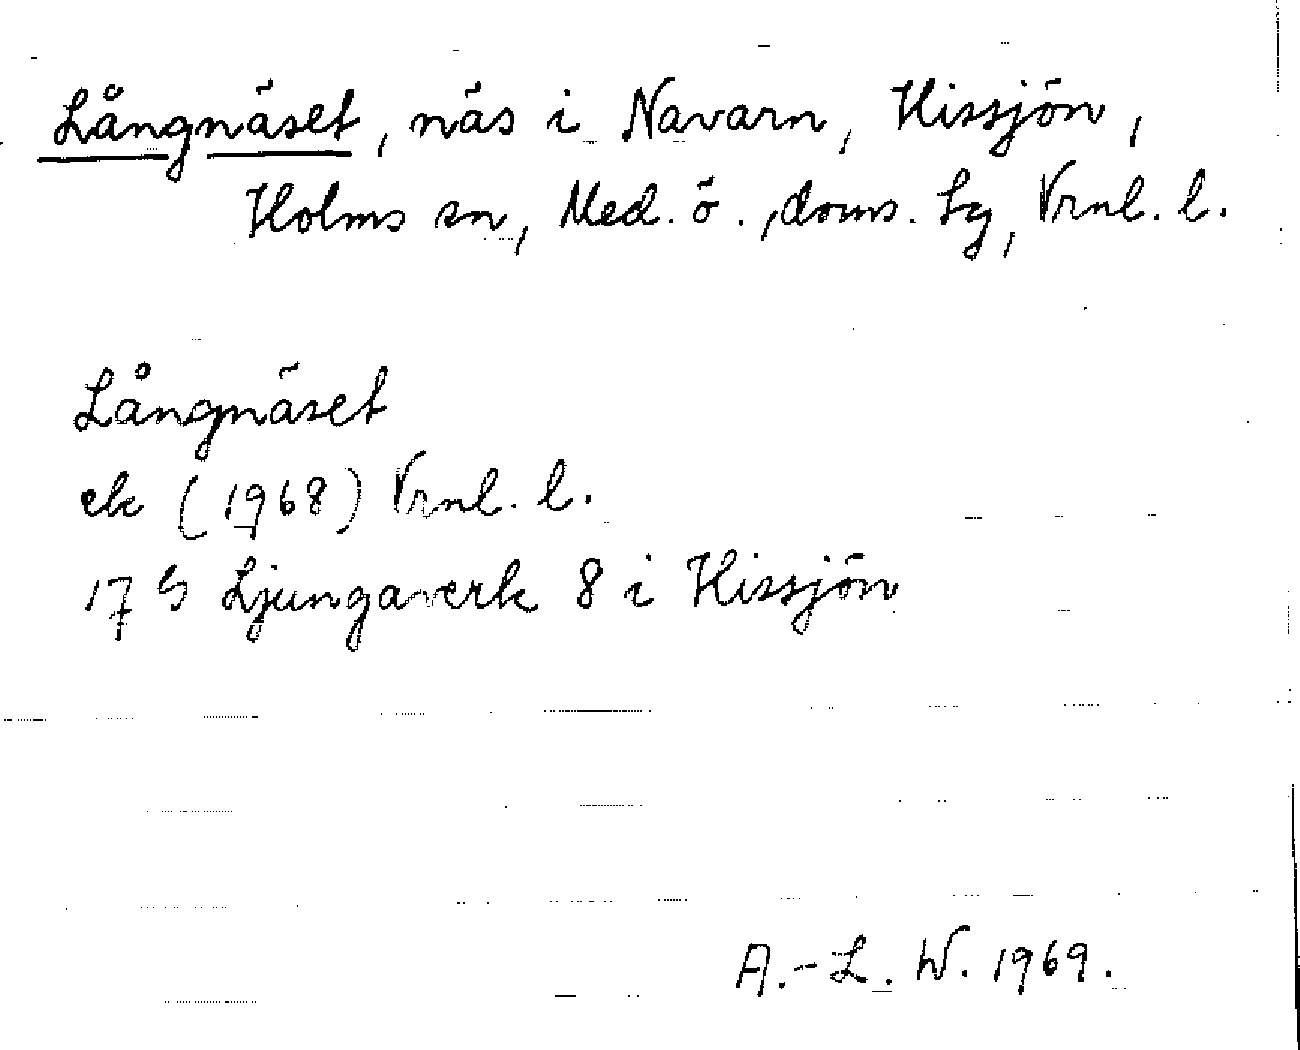 Långnäset, näs i Navarn, Hissjön,
Holms sn, Med. ö., doms. hg, Vrnl. l.
Långnäset
ek (1968) Vrnl. l.
17 G Ljungaverk 8 i Hissjön
A.-L. W. 1969.